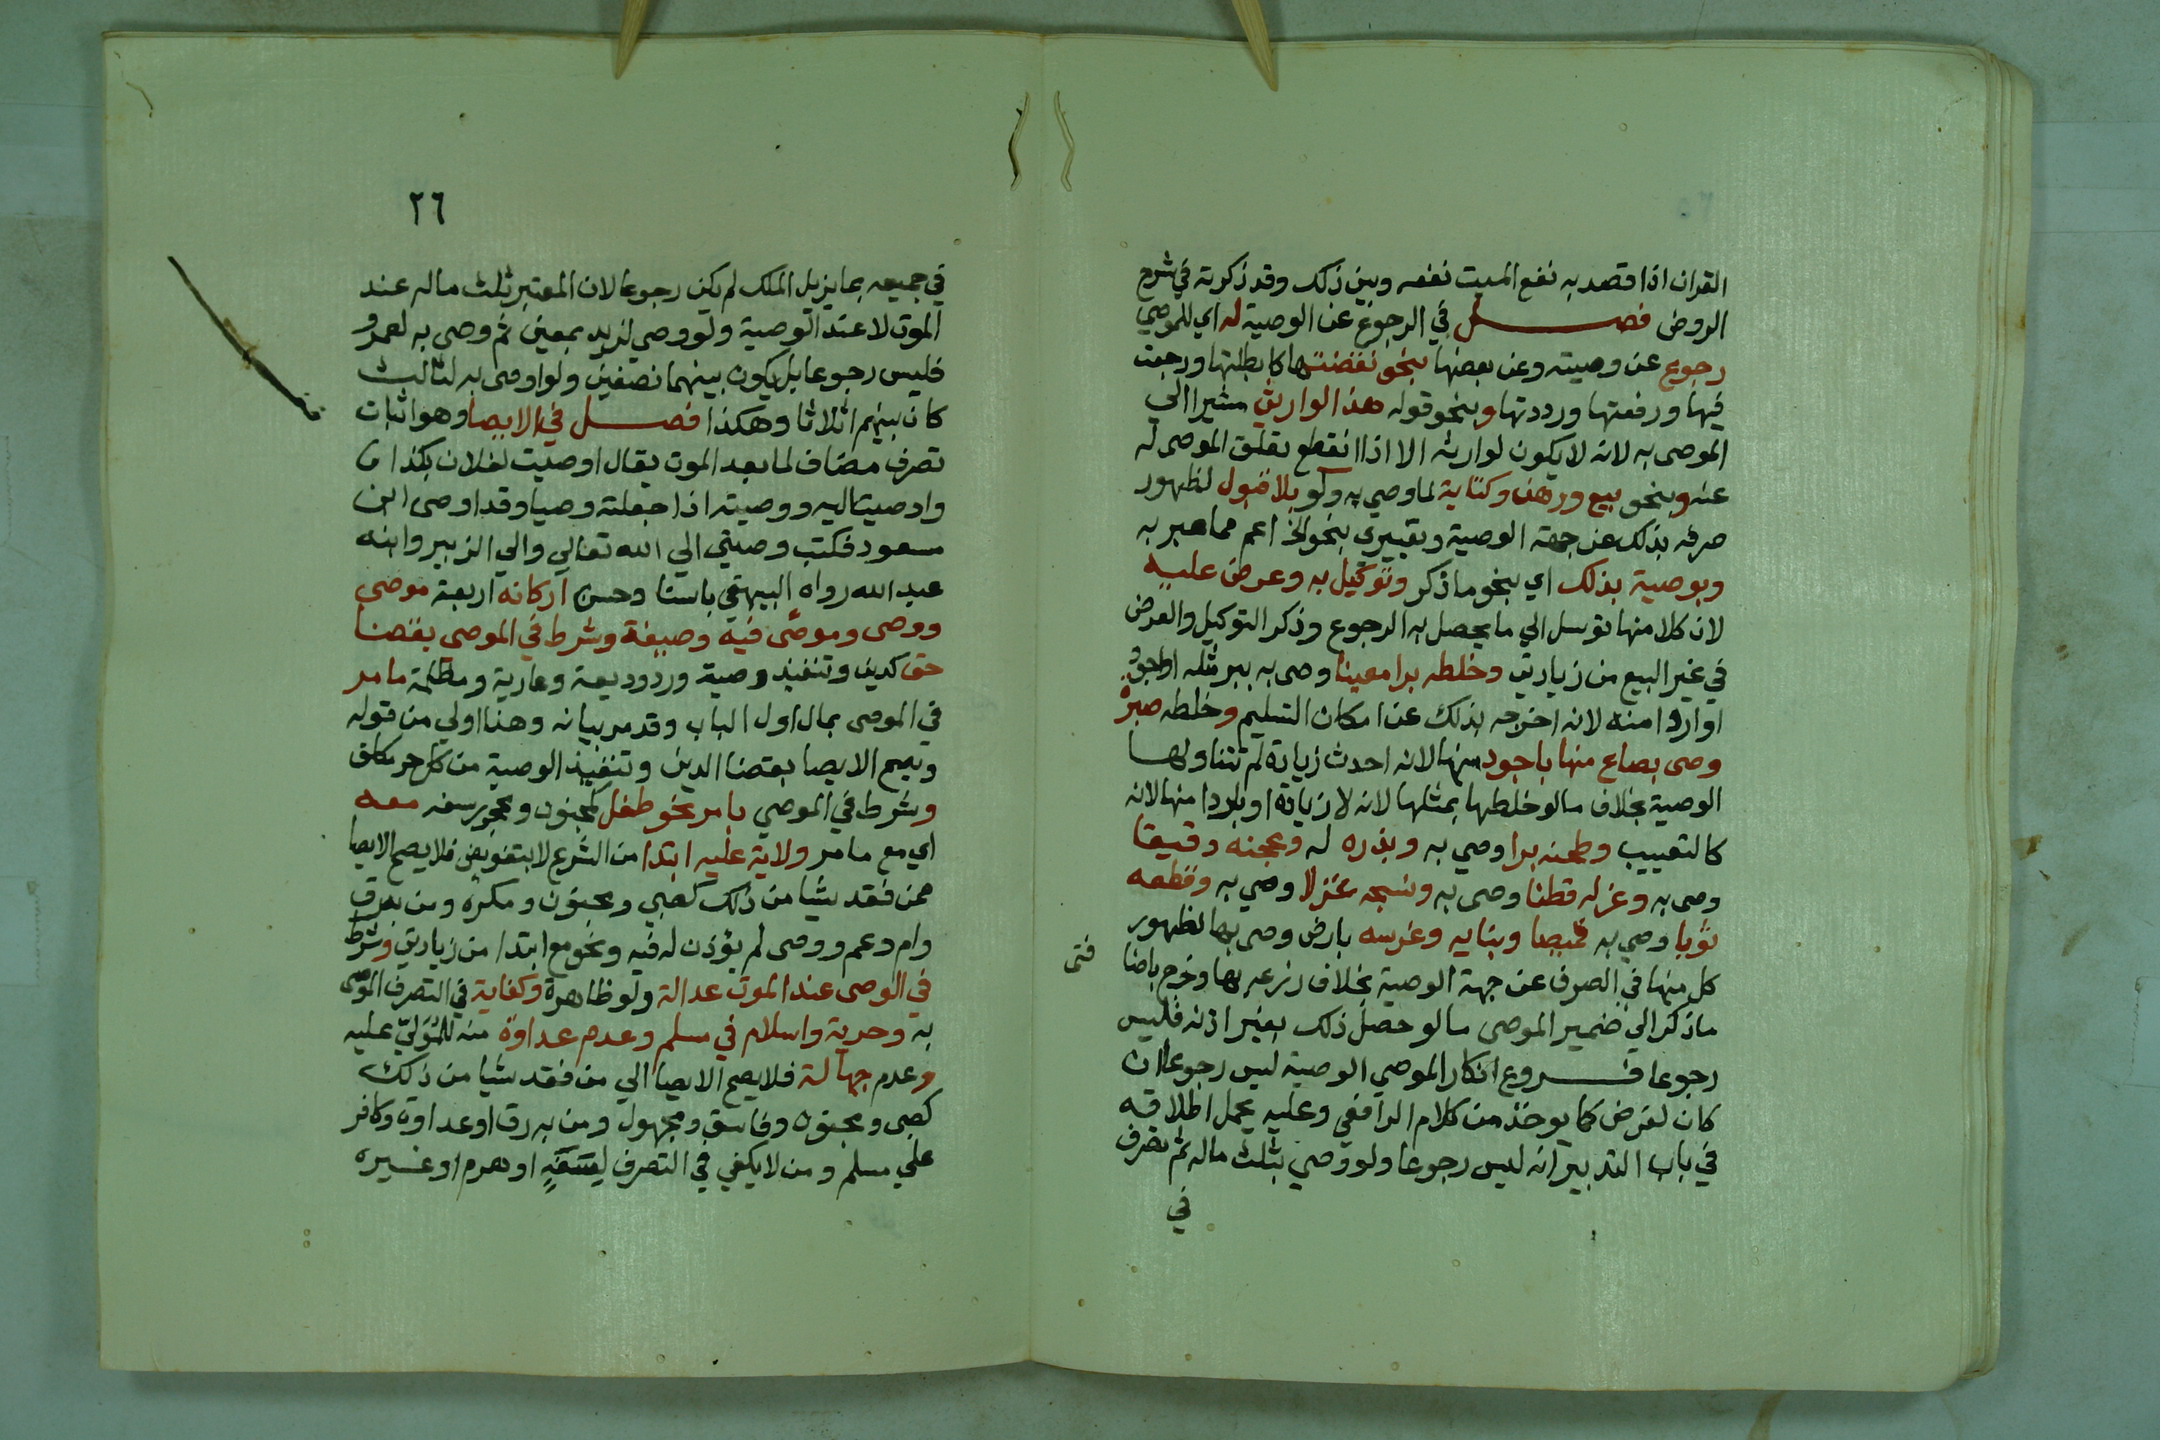 القران اذا قصد به نفع الميت نفعه وبين ذلك وقد ذكرته في شرح
الروض فصل في الرجوع عن الوصية له اي للموصي
رجوع عن وصيته وعن بعضها بنحو نقضتها كابطلتها ورجعت
فيها ورفعتها ورددتها وبنحو قوله هذا الوارثي مشيرا الي
الموصى به لانه لا يكون لوارثه الا اذا انقطع تعلق الموصى له
عنه وبنحو بيع ورهن وكتابة لما وصي به ولو بلا قبول لظهور
صرفه بذلك عن جهة الوصية وتعبيري بنحو الخ اعم مما عبر به
وبوصية بذلك اي بنحو ما ذكر وتوكيل به وعرض عليه
لان كلا منها توسل الي ما يحصل به الرجوع وذكر التوكيل والعرض
في غير البيع من زيادتي وخلطه برا معينا وصى به ببر مثله او اجود
او اردا منه لانه اخرجه بذلك عن امكان التسليم وخلطه صبرة
وصى بصاع منها باجود منها لانه احدث زيادة لم تتناولها
الوصية بخلاف ما لو خلطها بمثلها لانه لا زيادة او باردا منها لانه
كالتعييب وطحنه برا وصي به وبذره له وعجنه دقيقا
وصى به وغزله قطنا وصى به ونسجه غزلا وصي به وقطعه
ثوبا وصي به قميصا وبنايه وغرسه بارض وصى بها لظهور
كل منها في الصرف عن جهة الوصية بخلاف زرعه بها وخرج باضا
فتى
ما ذكر الي ضمير الموصى ما لو حصل ذلك بغير اذنه فليس
رجوعا فروع انكار الموصي الوصية ليس رجوعا ان
كان لغرض كما يوخذ من كلام الرافعي وعليه يحمل اطلاقه
في باب التدبير انه ليس رجوعا ولو وصي بثلث ماله ثم تصرف
في
٢٦
في جميعه بما يزيل الملك لم يكن رجوعا لان المعتبر ثلث ماله عند
الموت لا عند الوصية ولو وصي لزيد بمعين ثم وصى به لعمرو
فليس رجوعا بل يكون بينهما نصفين ولو اوصى به لثالث
كان بينهم اثلاثا وهكذا فصل في الايصا وهو اثبات
تصرف مضاف لما بعد الموت يقال اوصيت لفلان بكذا
واوصيت اليه ووصيته اذا جعلته وصيا وقد اوصى ابن
مسعود فكتب وصيتي الي الله تعالي والي الزبير وابنه
عبد الله رواه البيهقي باسنا د حسن اركانه اربعة موصي
ووصى وموصًى فيه وصيغة وشرط في الموصي بقضا
حق كدين وتنفيذ وصية ورد وديعة وعارية ومظلمة ما مر
في الموصى بمال اول الباب وقد مر بيانه وهذا اولي من قوله
ويصح الايصا بقضا الدين وتنفيذ الوصية من كل حر مكلف
وشرط في الموصي بامر نحو طفل كمجنون ومحجور سفه معه
اي مع ما مر ولاية عليه ابتدا من الشرع لا بتفويض فلا يصح الايصا
ممن فقد شيا من ذلك كصبي ومجنون ومكره ومن به رق
وام وعم ووصى لم يؤذن له فيه ونحو مع ابتدا من زيادتي وشرط
في الوصى عند الموت عدالة ولو ظاهرة وكفاية في التصرف الموصى
به وحرية واسلام في مسلم وعدم عداوة منه للمُوَلّيِ عليه
وعدم جهالة فلا يصح الايصا الي من فقد شيا من ذلك
كصبى ومجنون وفاسق ومجهول ومن به رق او عداوة وكافر
علي مسلم ومن لا يكفي في التصرف لِسَفَهٍ او هرم او غيره